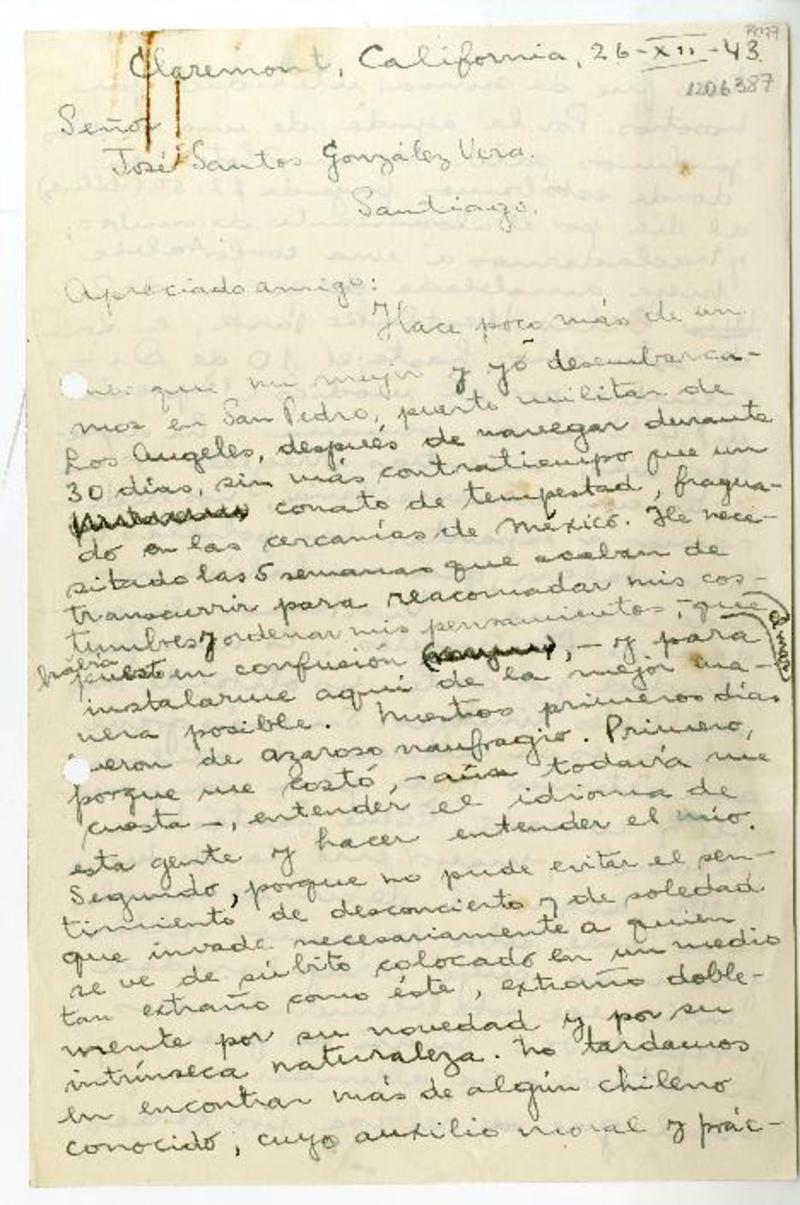 Claremont, California, 26-XII-43.
1206387
Señor
José Santos González Vera.
Santiago.
Apreciado amigo:
Hace poco más de un
mes que mi mujer y yo desembarca-
mos en San Pedro, puerto militar de
Los Angeles, después de navegar durante
30 días, sin más contratiempo que un
conato de tempestad, fragua-
do en las cercanías de México. He nece-
sitado las 5 semanas que acaban de
transcurrir para reacomodar mis cos-
tumbres y ordenar mis pensamientos, - que
el mar
había puesto en confusión, - y para
instalarme aquí de la mejor ma-
nera posible. Nuestros primeros días
fueron de azaroso naufragio. Primero,
porque me costó, - aún todavía me
cuesta -, entender el idioma de
esta gente y hacer entender el mío.
Segundo, porque no pude evitar el sen-
timiento de desconcierto y de soledad
que invade necesariamente a quien
se ve de súbito colocado en un medio
tan extraño como éste, extraño doble-
mente por su novedad y por su
intrínseca naturaleza. No tardamos
en encontrar más de algún chileno
conocido, cuyo auxilio moral y prác-